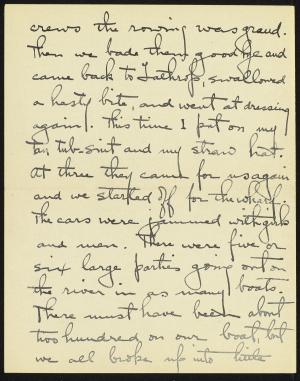 crews the rowing was grand.
Then we bade them goodbye and
came back to Lathrop, swallowed
a hasty bite, and went at dressing
again. This time I put on my
tan tub-suit and my straw hat.
At three they came for us again
and we started off for the wharf.
The cars were jammed with girls
and men. There were five or
six large parties going out on
the river in as many boats.
There must have been about
two hundred on our boat, but
we all broke up into little